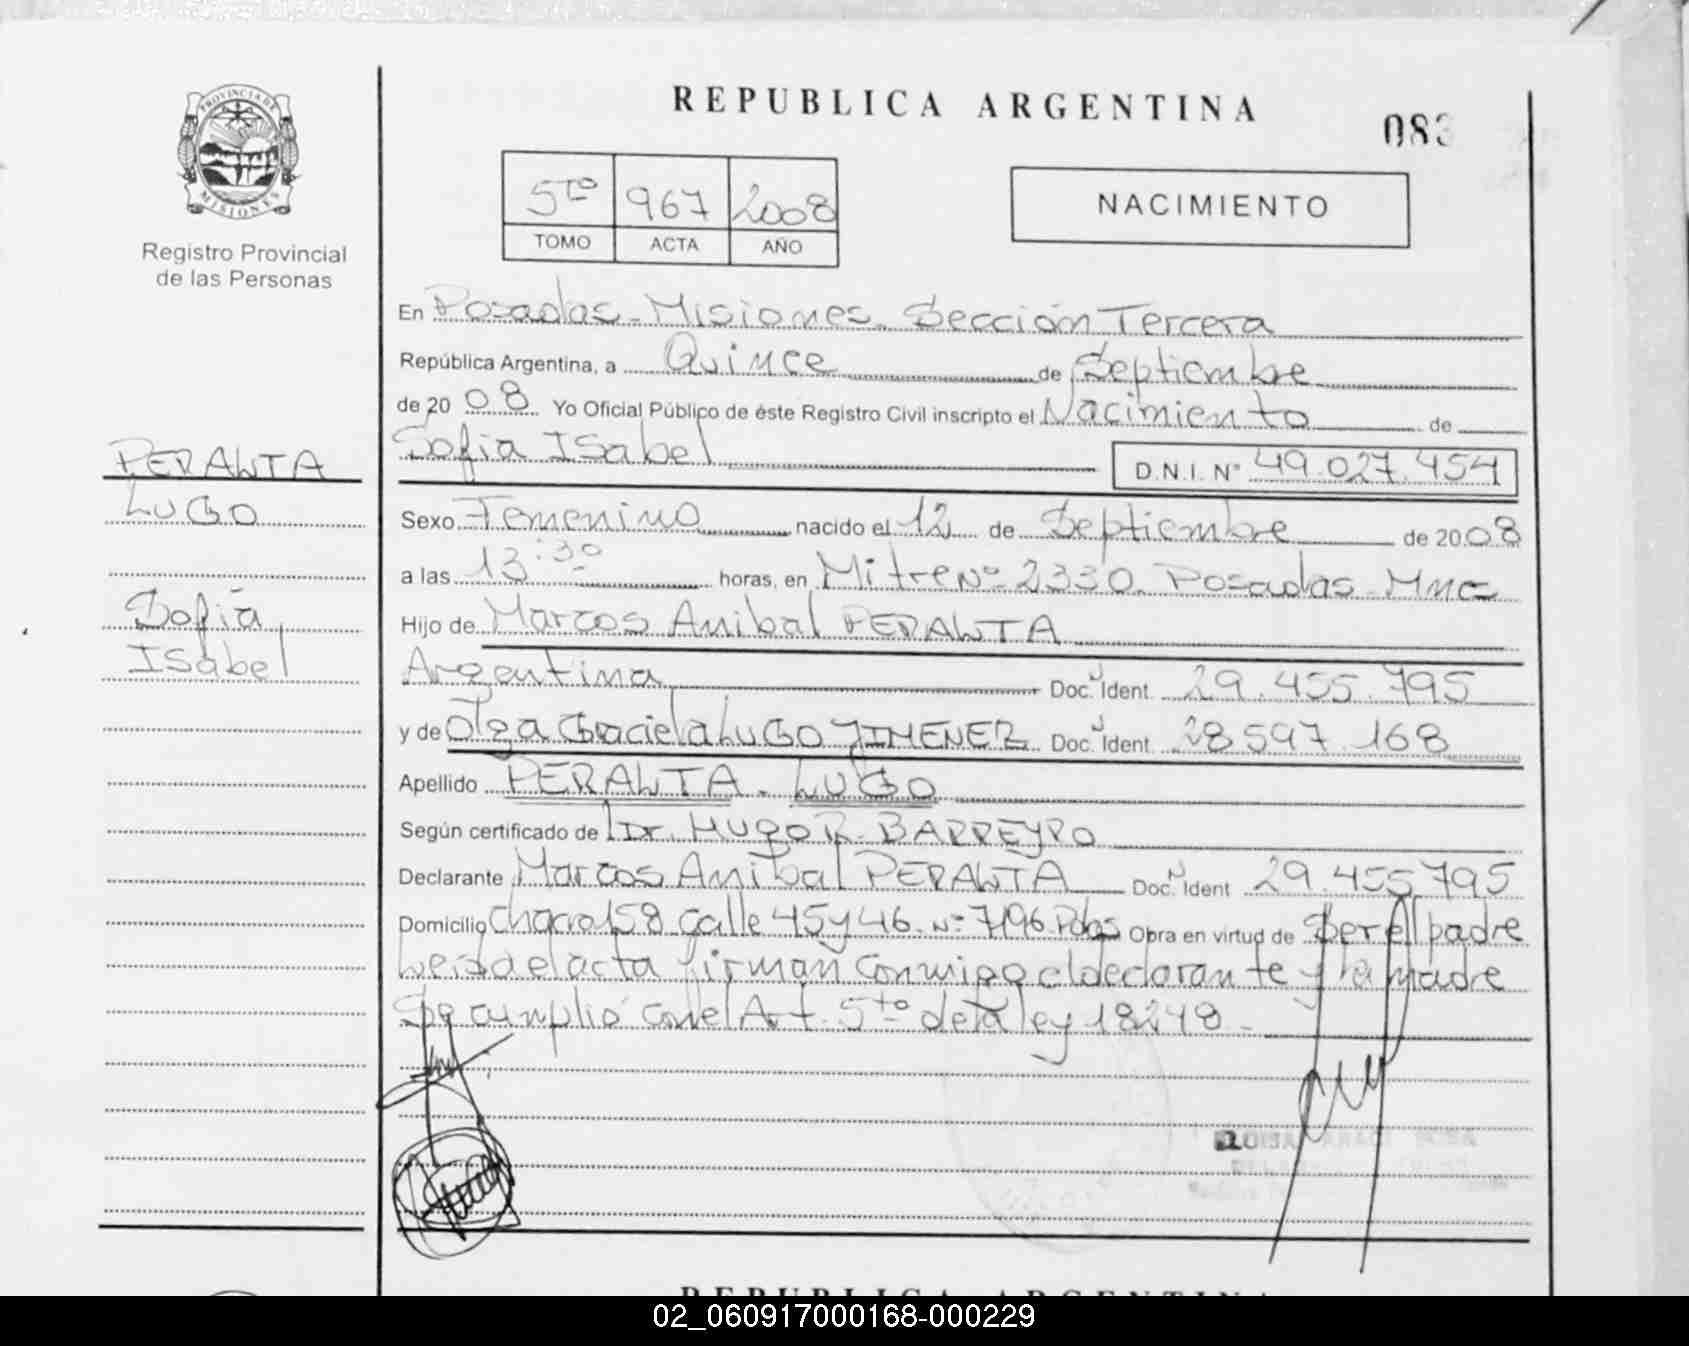 PROVINCIA DE
MISIONES
Registro Provincial
de las Personas
REPUBLICA ARGENTINA
083
5to 967 2008
TOMO ACTA AÑO
NACIMIENTO
En Posadas - Misiones. Sección Tercera
República Argentina, a Quince de Septiembre
de 20 08 Yo Oficial Público de éste Registro Civil inscripto el Nacimiento de
Sofia Isabel D.N.I. Nº 49.027.454
PERALTA
LUGO
Sofia
Isabel
Sexo Femenino nacido el 12 de Septiembre de 20 08
a las 13:30 horas, en Mitre Nº 2330. Posadas - Mnes
Hijo de Marcos Anibal PERALTA
Argentina Doc. Ident. 29.455.795
y de Olga Graciela LUGO JIMENEZ Doc. Ident. 28597.168
Apellido PERALTA - LUGO
Según certificado de Dr. HUGO R. BARREYRO
Declarante Marcos Anibal PERALTA Doc. Ident 29.455795
Domicilio Chacra 158 Calle 45 y 46. Nº 7196. Pdas Obra en virtud de Ser el padre
Leida el acta firman conmigo el declarante y la madre
Se cumplió con el Art. 5to de la ley 18248 -
REPUBLICA ARGENTINA
02_060917000168-000229